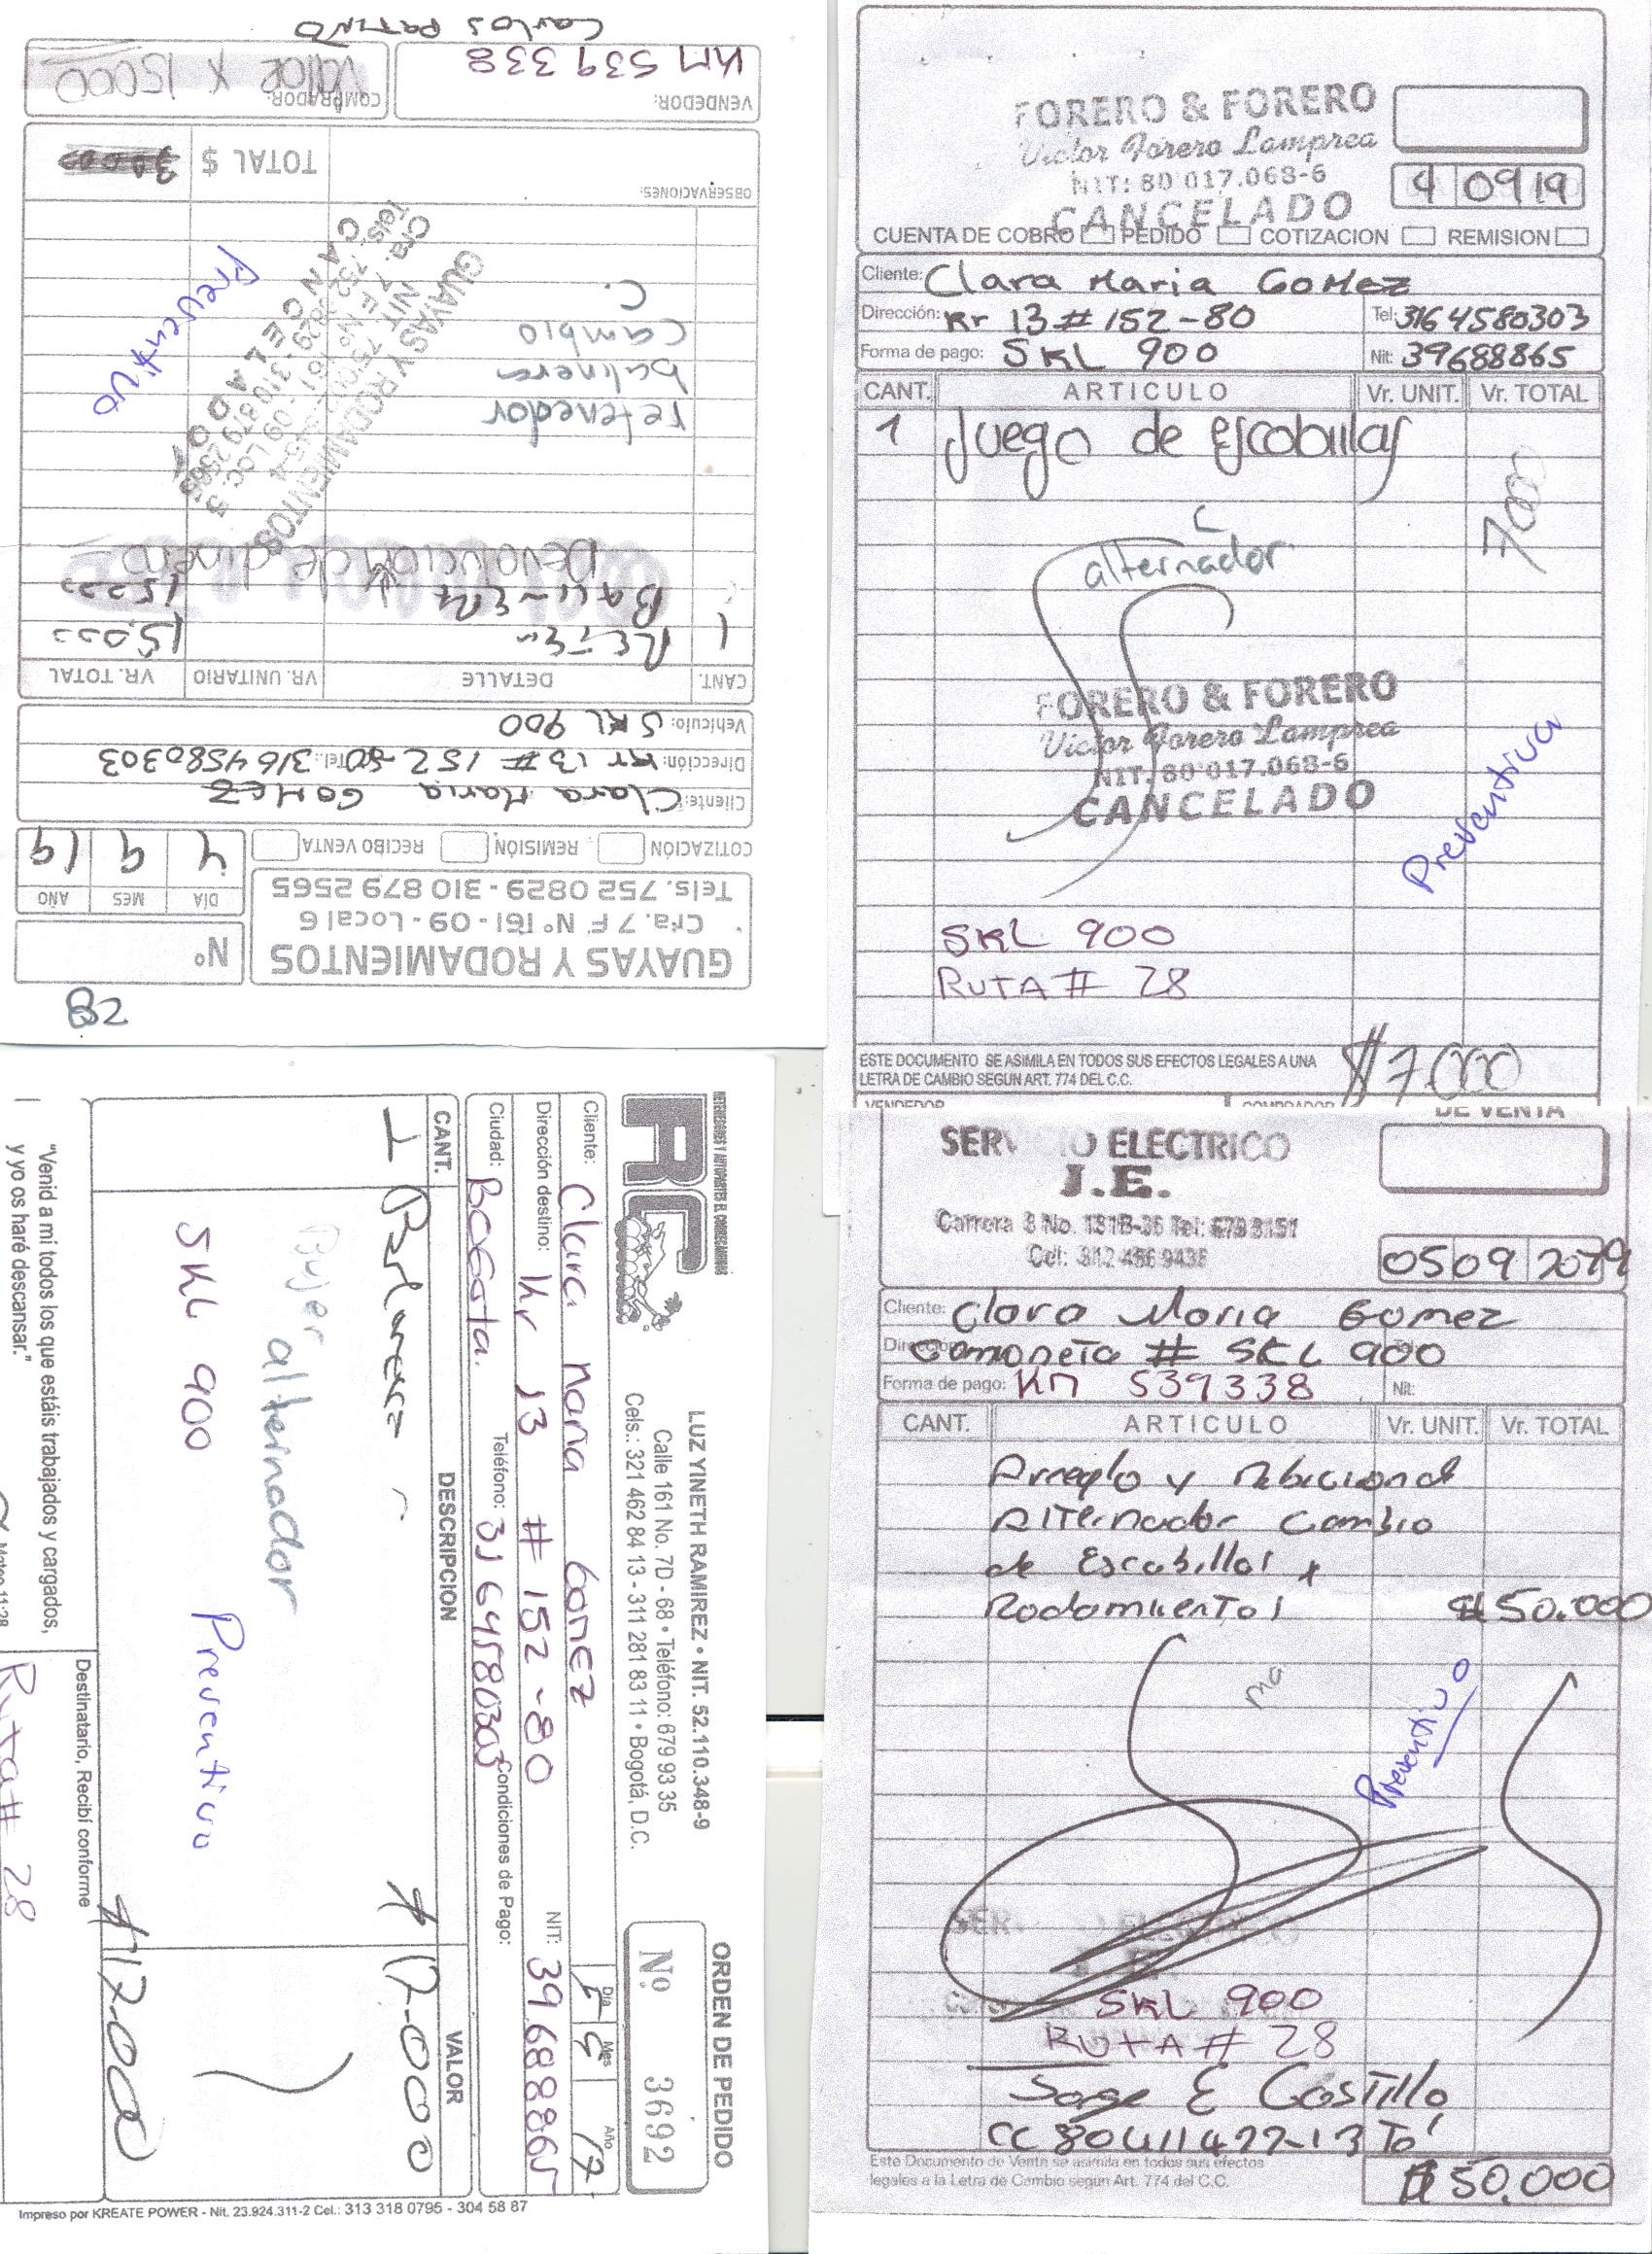 B2
GUAYAS Y RODAMIENTOS
Cra. 7 F Nº 161 - 09 - Local 6
Tels. 752 0829 - 310 879 2565
Nº
DÍA MES AÑO
4 9 19
COTIZACIÓN REMISIÓN RECIBO VENTA
Cliente: Clara Maria GOMEZ
Dirección: Kr 13 # 152-80 Tel: 3164580303
Vehículo: SKL 900
CANT. DETALLE VR. UNITARIO VR. TOTAL
1 RETEN 15.000
BALINERA 15000
DEVOLUCION de dinero
retenedor
balinera
cambio
C.
Preventivo
GUAYAS Y RODAMIENTOS
CANCELADO
OBSERVACIONES:
TOTAL $ 30000
VENDEDOR: KM 539338
COMPRADOR: Valor X 15000
Carlos PATIÑO
FORERO & FORERO
Victor Forero Lamprea
NIT: 80 017.068-6
CANCELADO
4 09 19
CUENTA DE COBRO PEDIDO COTIZACION REMISION
Cliente: Clara Maria GOMEZ
Dirección: Kr 13 # 152-80 Tel: 3164580303
Forma de pago: SKL 900 Nit: 39688865
CANT. ARTICULO Vr. UNIT. Vr. TOTAL
1 Juego de escobillas 7000
alternador
FORERO & FORERO
Victor Forero Lamprea
NIT: 80 017.068-6
CANCELADO
Preventiva
SKL 900
RUTA # 28
ESTE DOCUMENTO SE ASIMILA EN TODOS SUS EFECTOS LEGALES A UNA
LETRA DE CAMBIO SEGUN ART. 774 DEL C.C.
$7.000
VENDEDOR COMPRADOR
RC
LUZ YINETH RAMIREZ • NIT. 52.110.348-9
Calle 161 No. 7D - 68 • Teléfono: 679 93 35
Cels.: 321 462 84 13 - 311 281 83 11 • Bogotá, D.C.
ORDEN DE PEDIDO
Nº 3692
Cliente: Clara Maria Gomez
Día Mes Año
Dirección destino: Kr 13 # 152-80 NIT: 39.688865
Ciudad: BOGOTA. Teléfono: 3164580303 Condiciones de Pago:
CANT. DESCRIPCION VALOR
1 Balinera 17-000
Bujer
alternador
SKL 900 Preventivo
$17-000
"Venid a mi todos los que estáis trabajados y cargados,
y yo os haré descansar."
Mateo 11:28
Destinatario, Recibí conforme
Ruta # 28
Impreso por KREATE POWER - Nit. 23.924.311-2 Cel.: 313 318 0795 - 304 58 87
DE VENTA
SERVICIO ELECTRICO
J.E.
Carrera 8 No. 181B-36 Tel: 679 3151
Cel: 312 456 9438
05 09 2019
Cliente: Clara Maria Gomez
Dirección: Camoneta # SKL 900
Forma de pago: KM 539338 Nit:
CANT. ARTICULO Vr. UNIT. Vr. TOTAL
Arreglo y
Alternador Cambio
de Escobillas y
Rodamientos $50.000
mo
Preventivo
SKL 900
RUTA # 28
Jorge E Castillo
Este Documento de Venta se asimila en todos sus efectos
legales a la Letra de Cambio segun Art. 774 del C.C.
$50.000